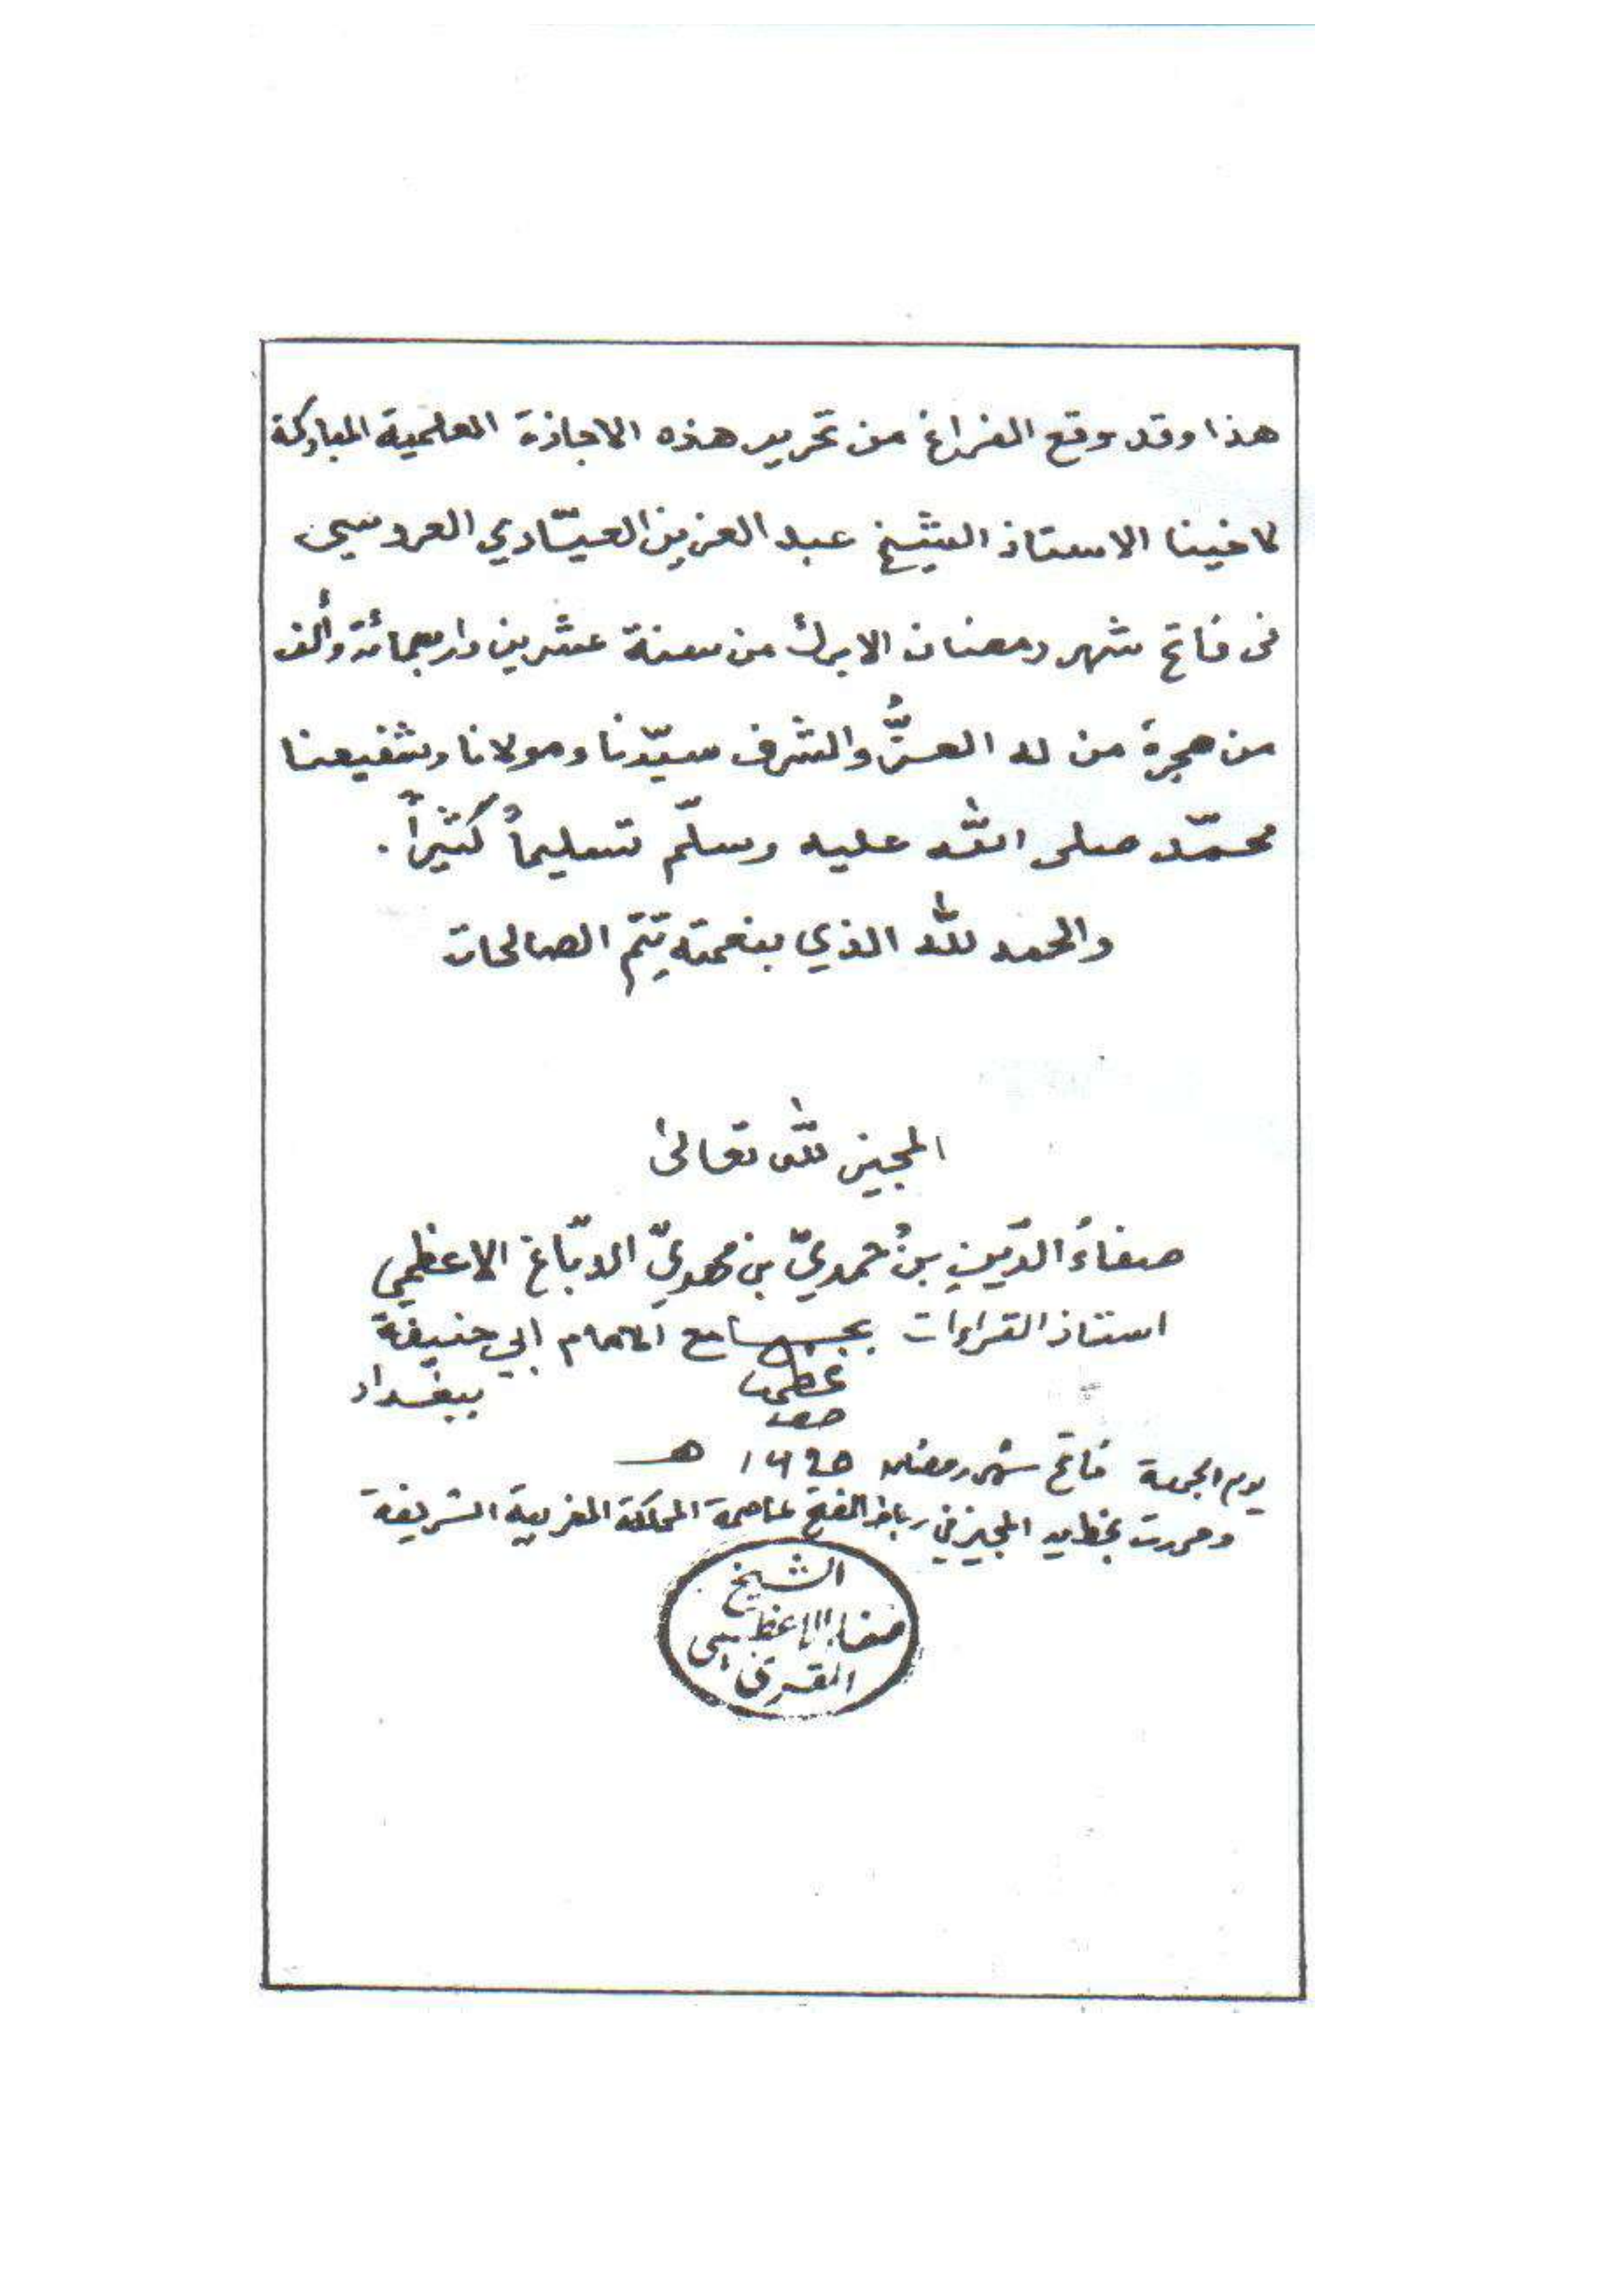 هذا وقد وقع الفراغ من تحرير هذه الاجازة العلمية المباركة
لاخينا الاستاذ الشيخ عبد العزيز العيّادي العروسي
في فاتح شهر رمضان الابرك من سنة عشرين واربعمائة وألف
من هجرة من له العزُّ والشرف سيّدنا ومولانا وشفيعنا
محمّد صلى الله عليه وسلّم تسليماً كثيراً.
والحمد لله الذي بنعمته تتمّ الصالحات
المجيز لله تعالى
صفاءُ الدّينِ بنُ حمديّ بن مهديّ الدبّاغ الاعظمي
استاذ القراءات بجامع الامام ابي حنيفة
ببغداد
يوم الجمعة فاتح شهر رمضان هـ
وحررت بخط يد المجيز في رباط الفتح عاصمة المملكة المغربية الشريفة
الشيخ
صفاء الاعظمي